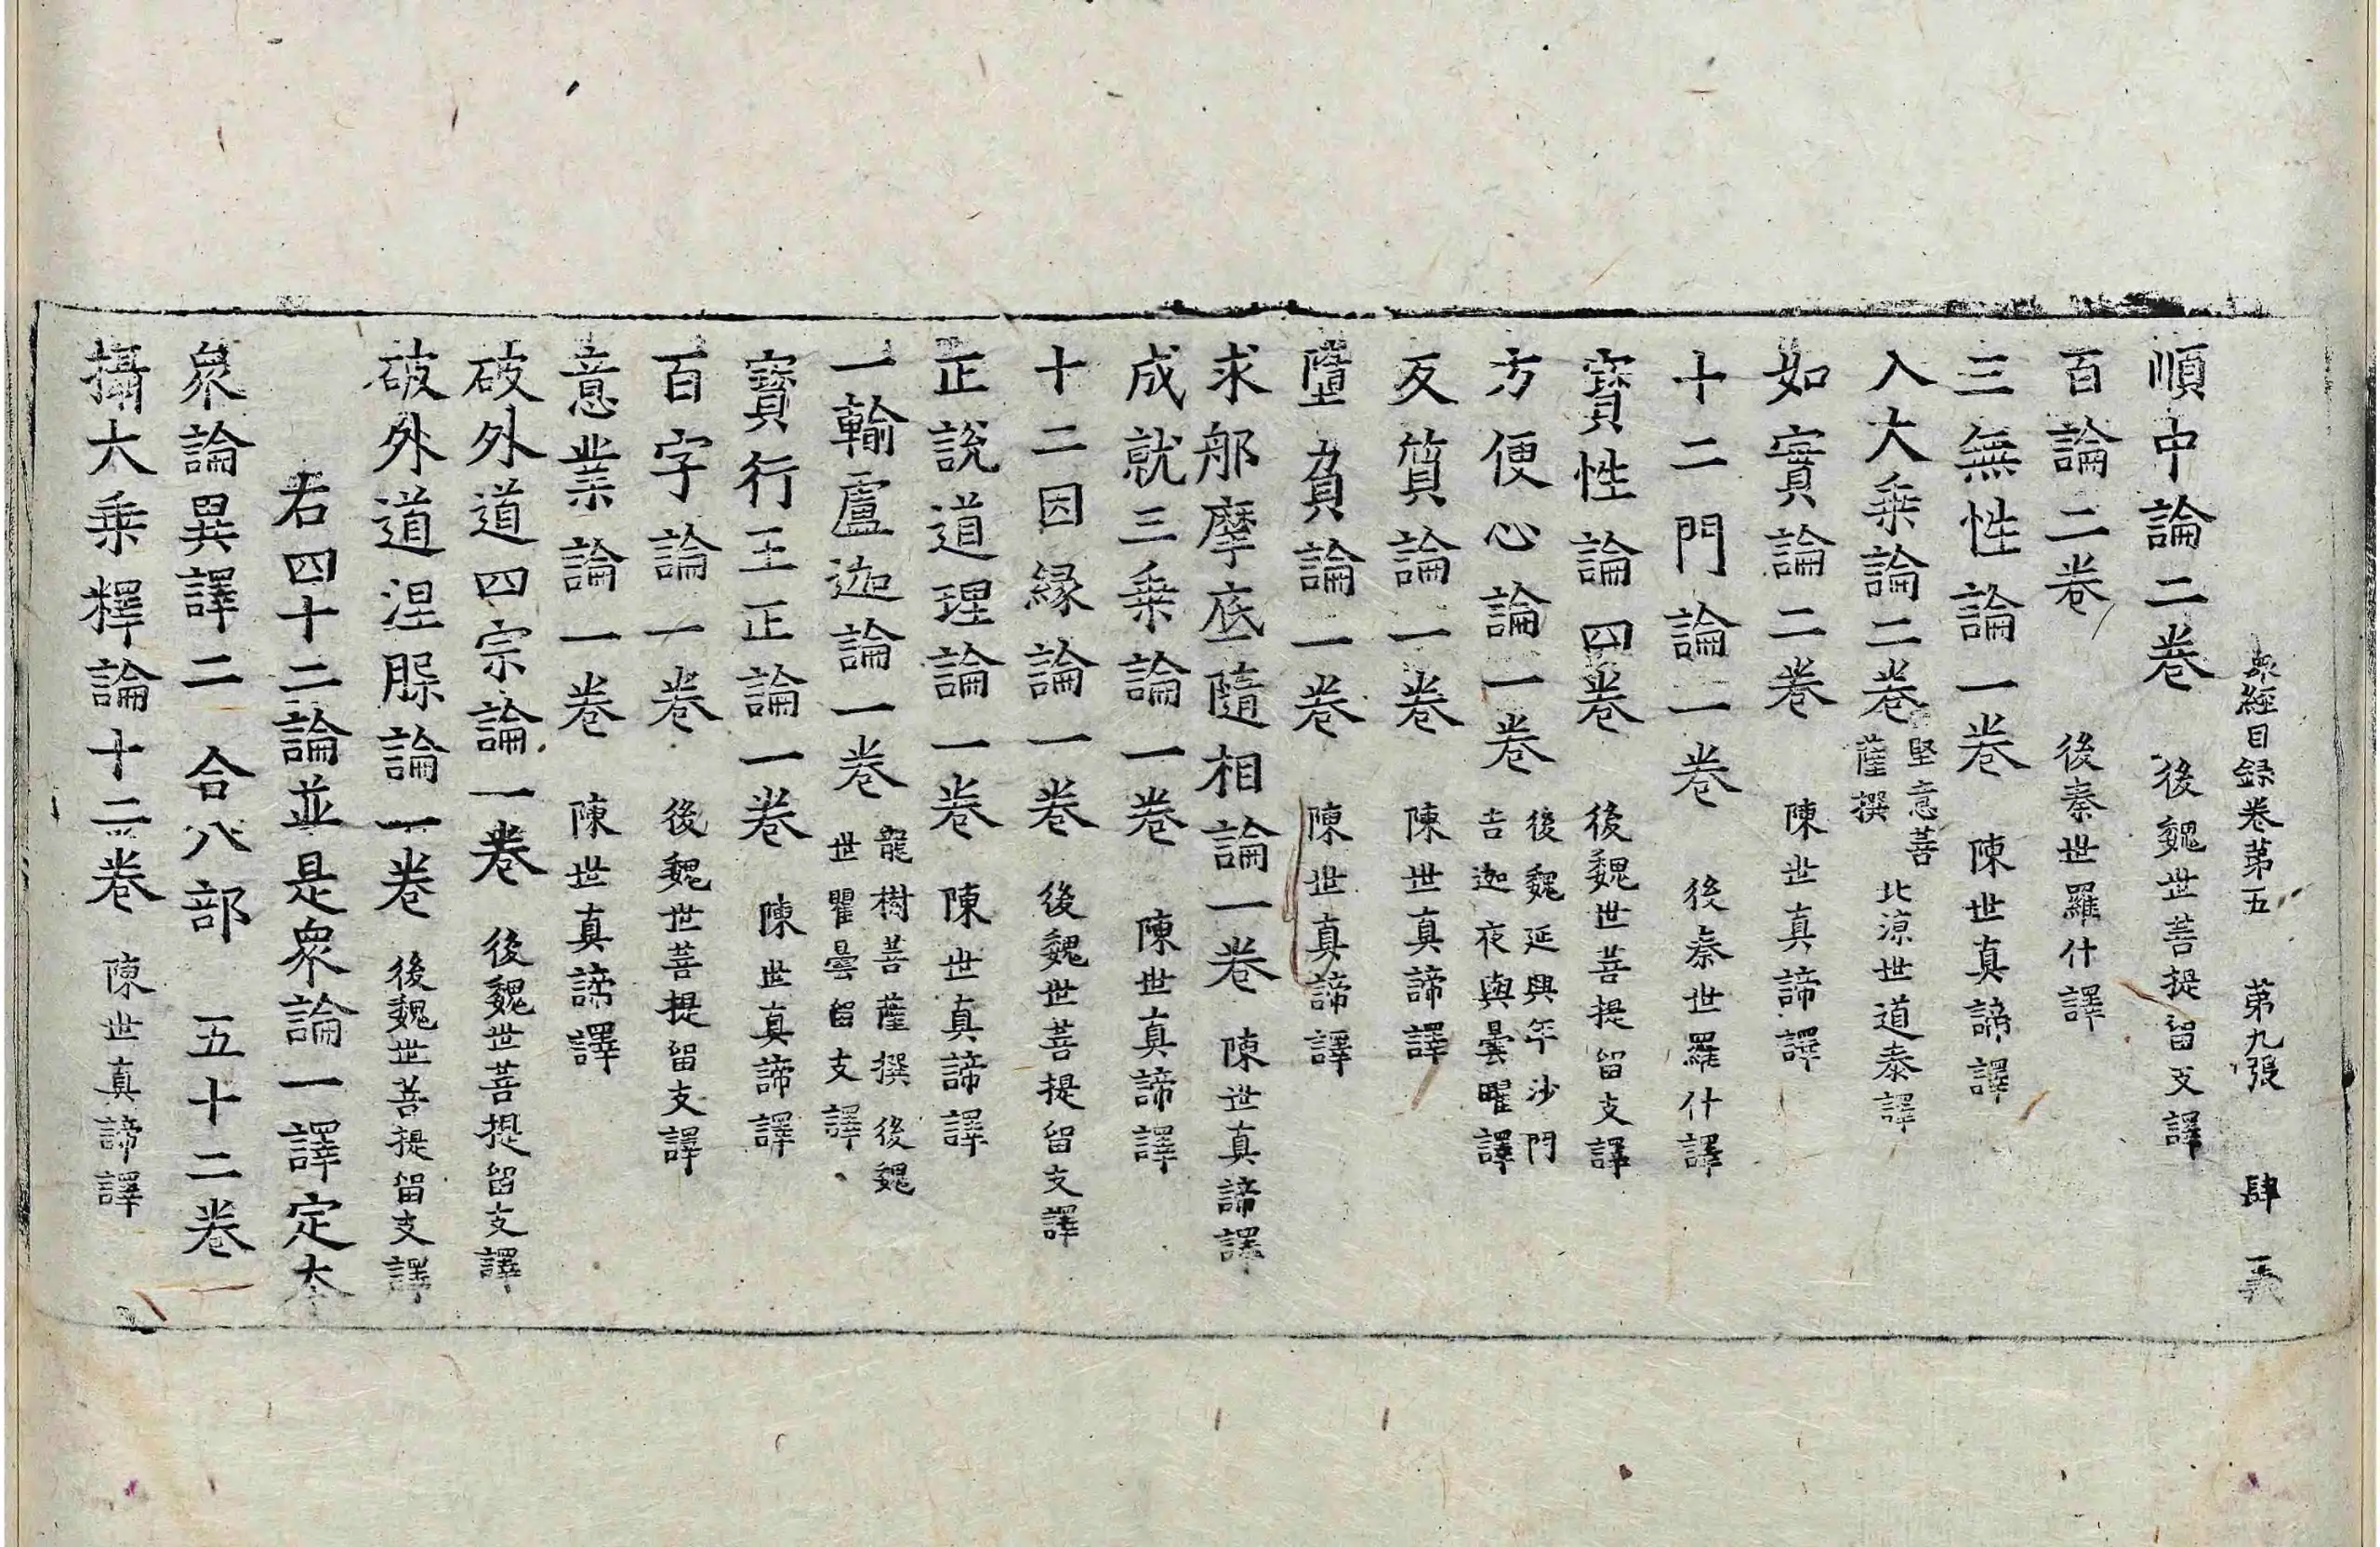 衆經目録卷苐五　苐九張　肆　義
順中論二卷　後魏世菩提留支譯
百論二卷　後秦世羅什譯
三無性論一卷　陳世真諦譯
入大乗論二卷 堅意菩薩撰 北涼世道泰譯
如實論二卷　陳世真諦譯
十二門論一卷　後秦世羅什譯
寳性論四卷　後魏世菩提留支譯
方便心論一卷　後魏延興年沙門吉迦夜與曇曜譯
反質論一卷　陳世真諦譯
墮負論一卷　陳世真諦譯
求那摩底隨相論一卷　陳世真諦譯
成就三乗論一卷　陳世真諦譯
十二因縁論一卷　後魏世菩提留支譯
正説道理論一卷　陳世真諦譯
一輸盧迦論一卷　龍樹菩薩撰後魏世瞿曇留支譯
寳行王正論一卷　陳世真諦譯
百字論一卷　後魏世菩提留支譯
意業論一卷　陳世真諦譯
破外道四宗論一卷　後魏世菩提留支譯
破外道涅槃論一卷　後魏世菩提留支譯
右四十二論並是衆論一譯定本
衆論異譯二　合八部　五十二卷
攝大乗釋論十二卷　陳世真諦譯